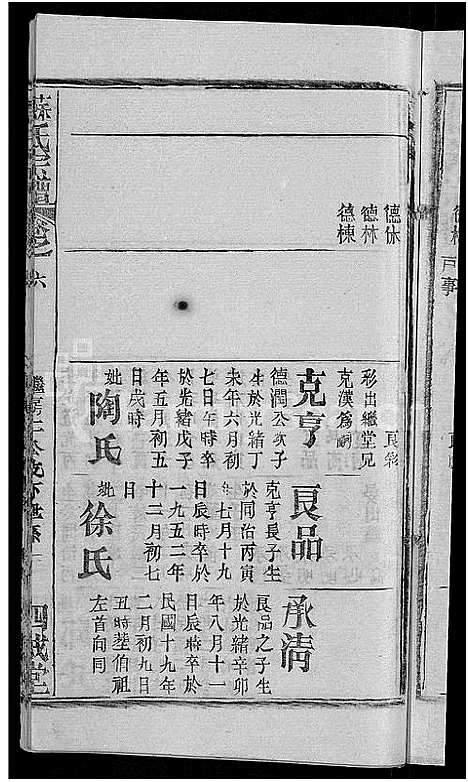 德休
德林
德棟
良彩
彩出繼堂兄
克漢爲嗣
克亨
德潤公次子
生於光緒丁
未年六月初
七日午時卒
於光緒戊子
年五月初五
日戌時
妣陶氏
良品
克亨長子生
於同治丙寅
年七月十九
日辰時卒於
一九五二年
十二月初七
日
妣徐氏
承清
良品之子生
於光緒辛卯
年八月十一
日辰時卒於
民國十九年
二月初九日
丑時塟伯祖
左首向同
蘇氏宗譜
卷之六
四誠堂
戸事